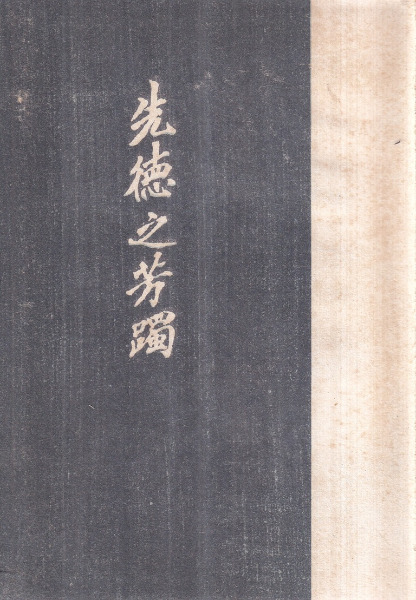 先徳之芳躅